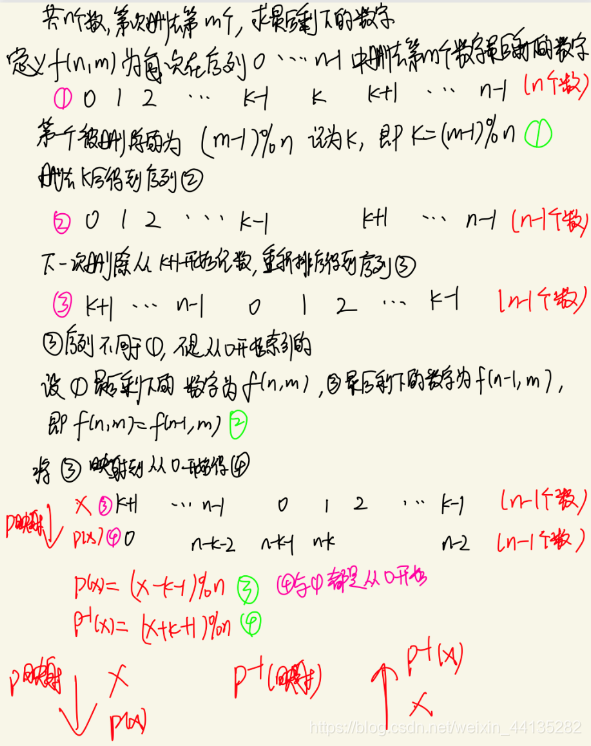 共n个数,第次删去第m个,求最后剩下的数字
定义f(n,m)为每次在序列0 … n-1中删去第m个数字最后剩下的数字
① 0 1 2 … k-1 k k+1 … n-1 (n个数)
第一个被删除的为 (m-1)%n 记为k, 即k=(m-1)%n ①
删去k后得到序列②
② 0 1 2 … k-1 k+1 … n-1 (n-1个数)
下一次删除从k+1开始记数,重新排序得到序列③
③ k+1 … n-1 0 1 2 … k-1 (n-1个数)
③序列不同于①, 不是从0开始索引的
设①最后剩下的数字为f(n,m),③最后剩下的数字为f(n-1,m),
即f(n,m)=f(n-1,m) ②
将③映射到从0开始得④
p映射 x ③ k+1 … n-1 0 1 2 … k-1 (n-1个数)
p(x) ④ 0 n-k-2 n-k-1 n-k n-2 (n-1个数)
p(x)=(x-k-1)%n ③ ④与①都是从0开始
p⁻¹(x)=(x+k+1)%n ④
p映射 x p⁻¹(映射) p⁻¹(x)
p(x) x
https://blog.csdn.net/weixin_44135282